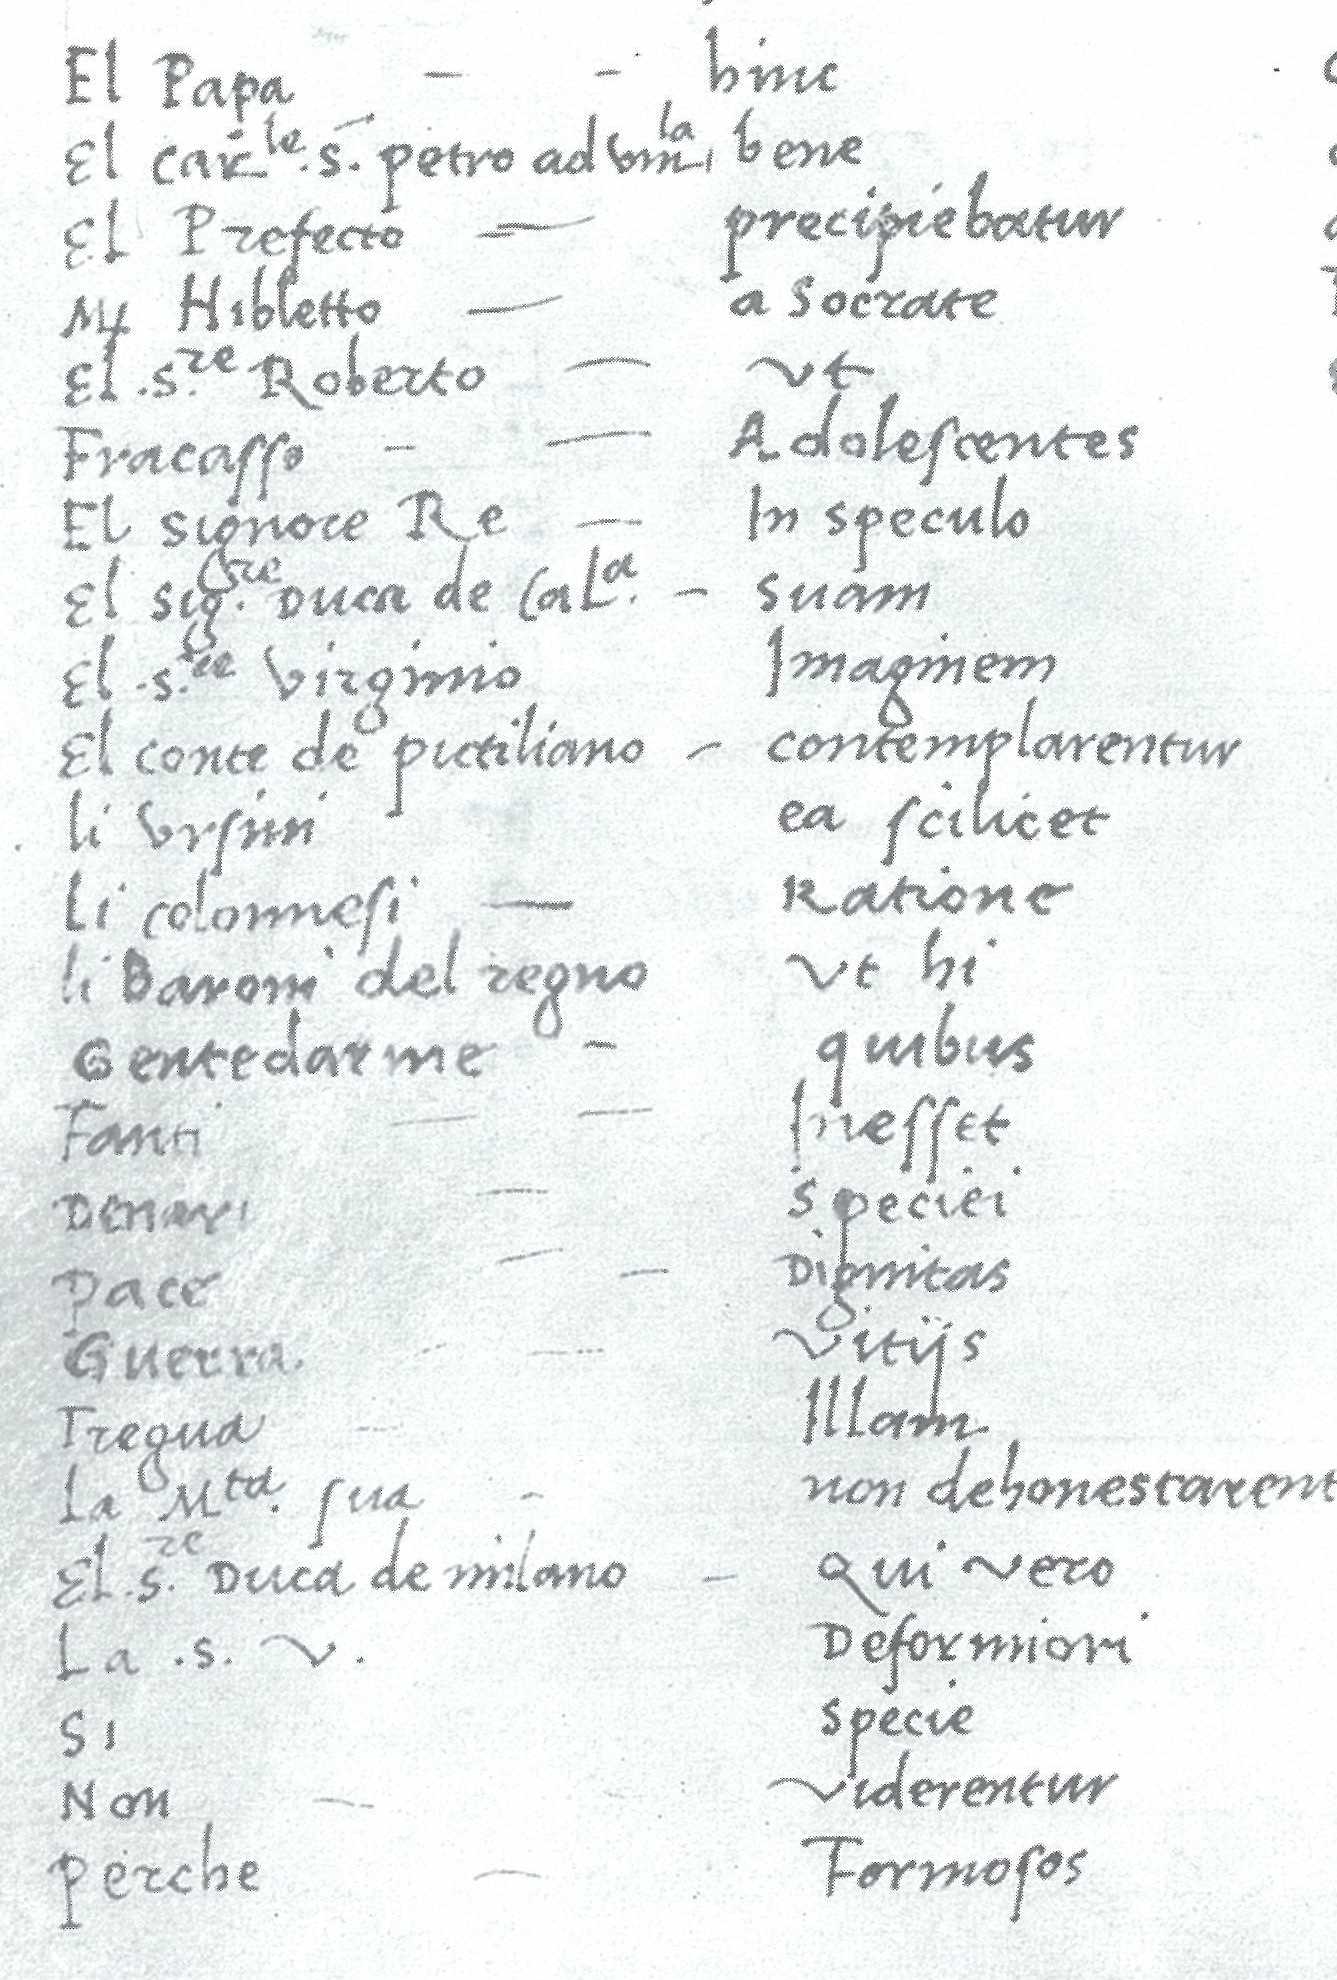 El Papa – – hinc
El car.le .s. petro ad vin.la bene
El Prefecto — precipiebatur
M. Hibletto — a Socrate
El .s.re Roberto — vt
Fracasso – — Adolescentes
El Signore Re — In speculo
El sig.re Duca de Cal.a – suam
El .s.re Virginio Imaginem
El conte de pictiliano – contemplarentur
li Vrsini ea scilicet
Li colonnesi — Ratione
li Baroni del regno vt hi
Gentedarme – quibus
Fanti — — Inesset
Denari — speciei
Pace — — Dignitas
Guerra. – — vitijs
Tregua — Illam
La M.ta sua – non dehonestarent
El .s.re Duca de milano – Qui vero
La .s. v. Deformiori
Si specie
Non — viderentur
perche — Formosos